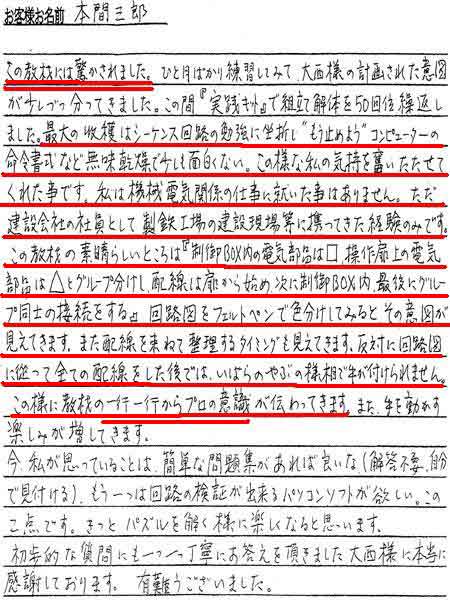 お客様お名前 本間三郎
この教材には驚かされました。ひと月ばかり練習してみて、大西様の計画された意図
が少しづつ分ってきました。この間『実践キット』で組立解体を50回位繰返し
ました。最大の収穫はシーケンス回路の勉強に挫折し"もう止めよう"コンピューターの
命令書式など無味乾燥で少しも面白くない。この様な私の気持を奮いたたせて
くれた事です。私は機械電気関係の仕事に就いた事はありません。ただ
建設会社の社員として製鉄工場の建設現場等に携ってきた経験のみです。
この教材の素晴らしいところは『制御BOX内の電気部品は□ 操作扉上の電気
部品は△とグループ分けし、配線は扉から始め次に制御BOX内、最後にグルー
プ同士の接続をする』回路図をフェルトペンで色分けしてみるとその意図が
見えてきます。また配線を束ねて整理するタイミングも見えてきます。反対に回路図
に従って全ての配線をした後では、いばらのやぶの様相で手が付けられません。
この様に教材の一行一行からプロの意識が伝わってきます。また、手を動かす
楽しみが増してきます。
今、私が思っていることは、簡単な問題集があれば良いな(解答不要、自分
で見付ける)、もう一つは回路の検証が出来るパソコンソフトが欲しい。この
二点です。きっとパズルを解く様に楽しくなると思います。
初歩的な質問にも一つ一つ丁寧にお答えを頂きました大西様に本当に
感謝しております。 有難うございました。